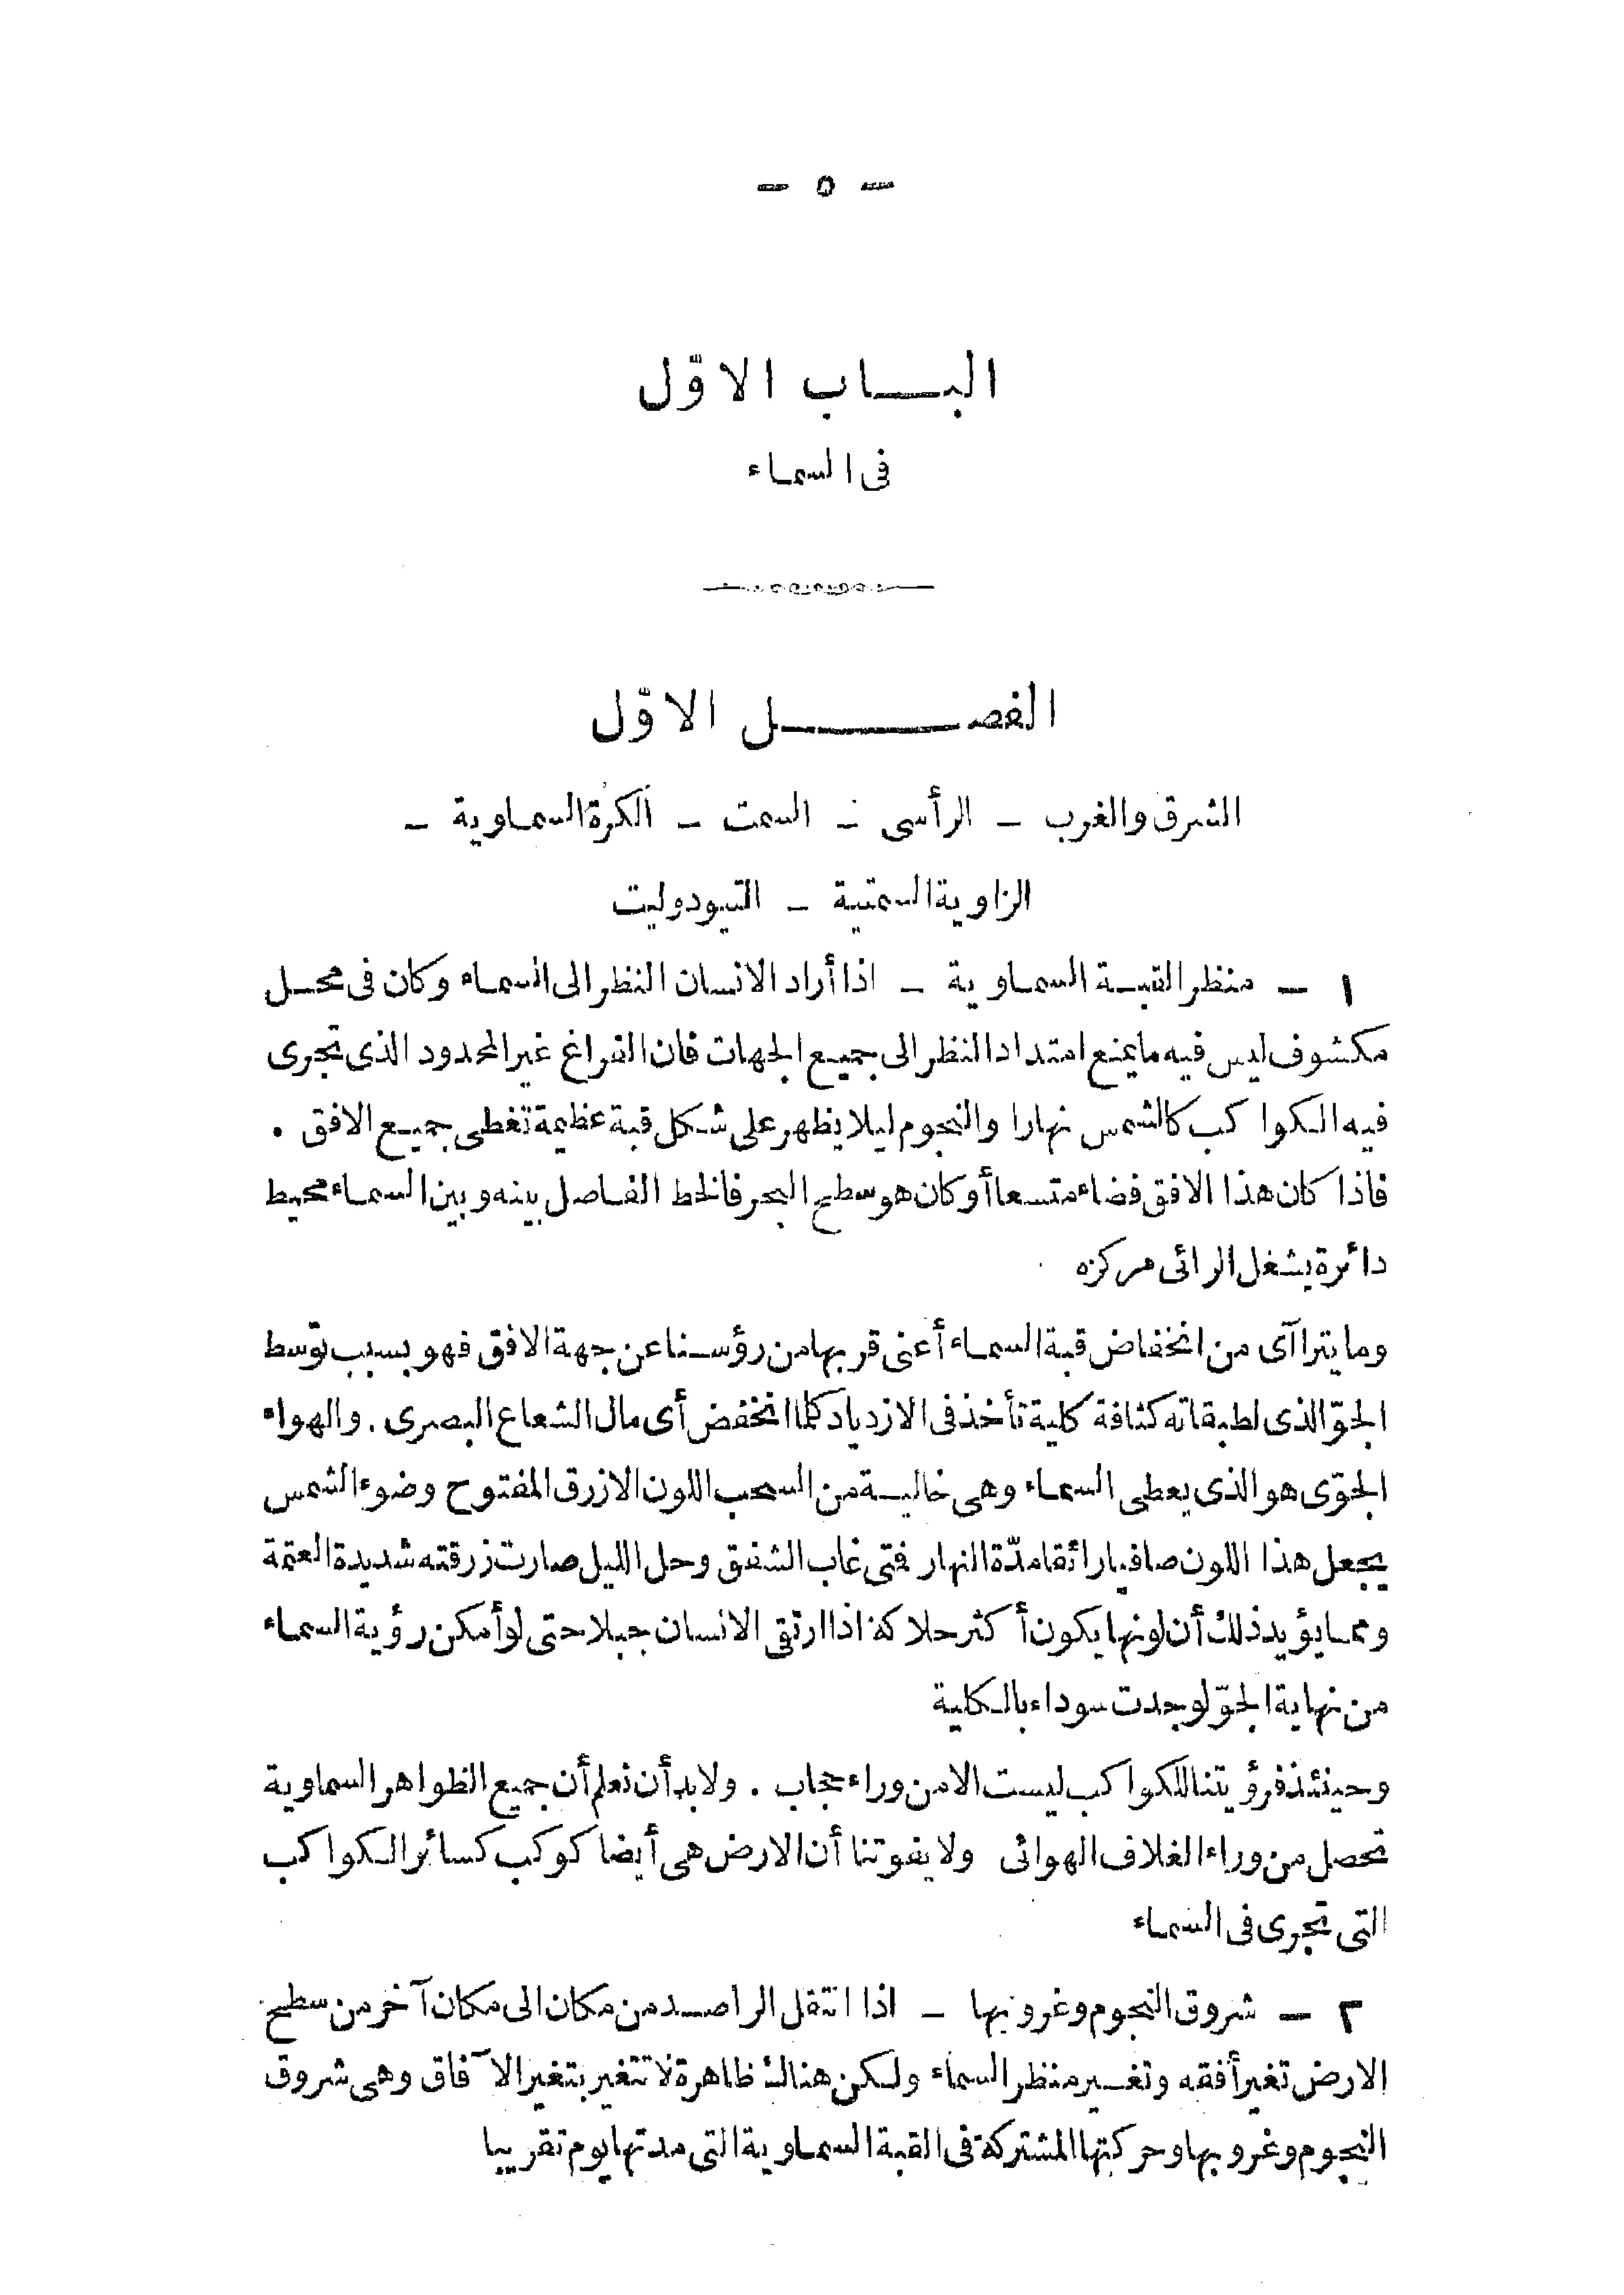 — ٥ —
البــاب الاوّل
فى السماء
الفصــــل الاوّل
الشرق والغرب – الرأسى – السمت – الكرة السماوية –
الزاوية السمتية – التيودوليت
١ – منظر القبة السماوية – اذا أراد الانسان النظر الى السماء وكان فى محل
مكشوف ليس فيه ما يمنع امتداد النظر الى جميع الجهات فان الفراغ غير المحدود الذى تجرى
فيه الكواكب كالشمس نهارا والنجوم ليلا يظهر على شكل قبة عظيمة تغطى جميع الافق .
فاذا كان هذا الافق فضاء متسعا أو كان هو سطح البحر فالخط الفاصل بينه وبين السماء محيط
دائرة يشغل الرائى مركزه
وما يتراآى من انخفاض قبة السماء أعنى قربها من رؤسنا عن جهة الافق فهو بسبب توسط
الجوّ الذى لطبقاته كثافة كلية تأخذ فى الازدياد كلما انخفض أى مال الشعاع البصرى . والهواء
الجوّى هو الذى يعطى السماء وهى خالية من السحب اللون الازرق المفتوح وضوء الشمس
يجعل هذا اللون صافيا رائقا مدّة النهار فمتى غاب الشفق وحل الليل صارت زرقته شديدة العتمة
ومما يؤيد ذلك أن لونها يكون أكثر حلاكة اذا ارتقى الانسان جبلا حتى لو أمكن رؤية السماء
من نهاية الجوّ لوجدت سوداء بالكلية
وحينئذ فرؤيتنا للكواكب ليست الا من وراء حجاب . ولا بد أن نعلم أن جميع الظواهر السماوية
تحصل من وراء الغلاف الهوائى ولا يفوتنا أن الارض هى أيضا كوكب كسائر الكواكب
التى تجرى فى السماء
٢ – شروق النجوم وغروبها – اذا انتقل الراصد من مكان الى مكان آخر من سطح
الارض تغير أفقه وتغير منظر السماء ولكن هنالك ظاهرة لا تتغير بتغير الآفاق وهى شروق
النجوم وغروبها وحركتها المشتركة فى القبة السماوية التى مدتها يوم تقريبا